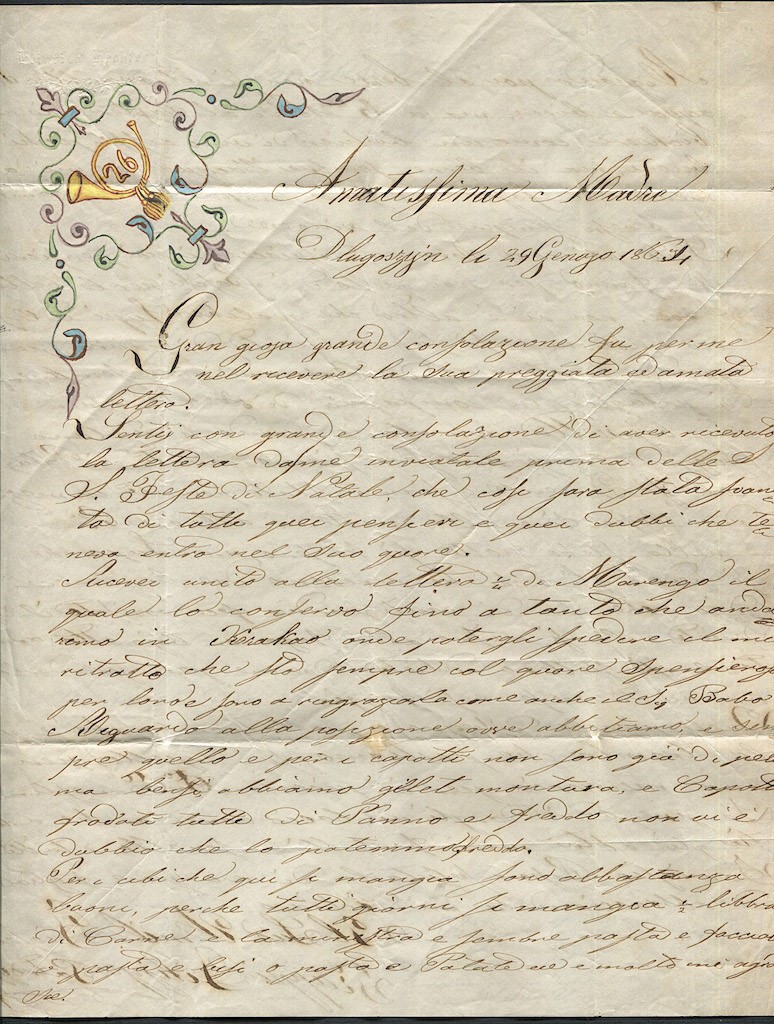 26
Amatissima Madre
Dlugoszÿn li 29 Genajo 1863
Gran gioja grande consolazione fu per me
nel ricevere la sua preggiata ed amata
lettera.
Sentij con grande consolazione di aver ricevuto
la lettera dame inviatale prima delle S
S. Feste di Natale, che cosi sara stata
di tutti quei pensieri e quei dubbi che te
neva entro nel suo quore.
unito alla lettera di Marengo il
quale lo conservo fino a tanto che anda
remo in Krakao onde potergli spedire il mi
ritratto che stò sempre col quore
per loro e sono a ringraziarla come anche il Sig Babo
Riguardo alla posizione ove abbitiamo, e sem
pre quello e per i capotti non sono già di
ma bensi abbiamo gilet montura, e Capott
frodati tutti di Panno e freddo non vi è
dubbio che lo patemmo freddo.
Per i cibi che qui si mangia sono abbastanza
buoni, perche tutti giorni si mangia 1/2 libbra
di Carne e la minestra e sempre pasta e
o pasta e risi o pasta e Patate e molto mi